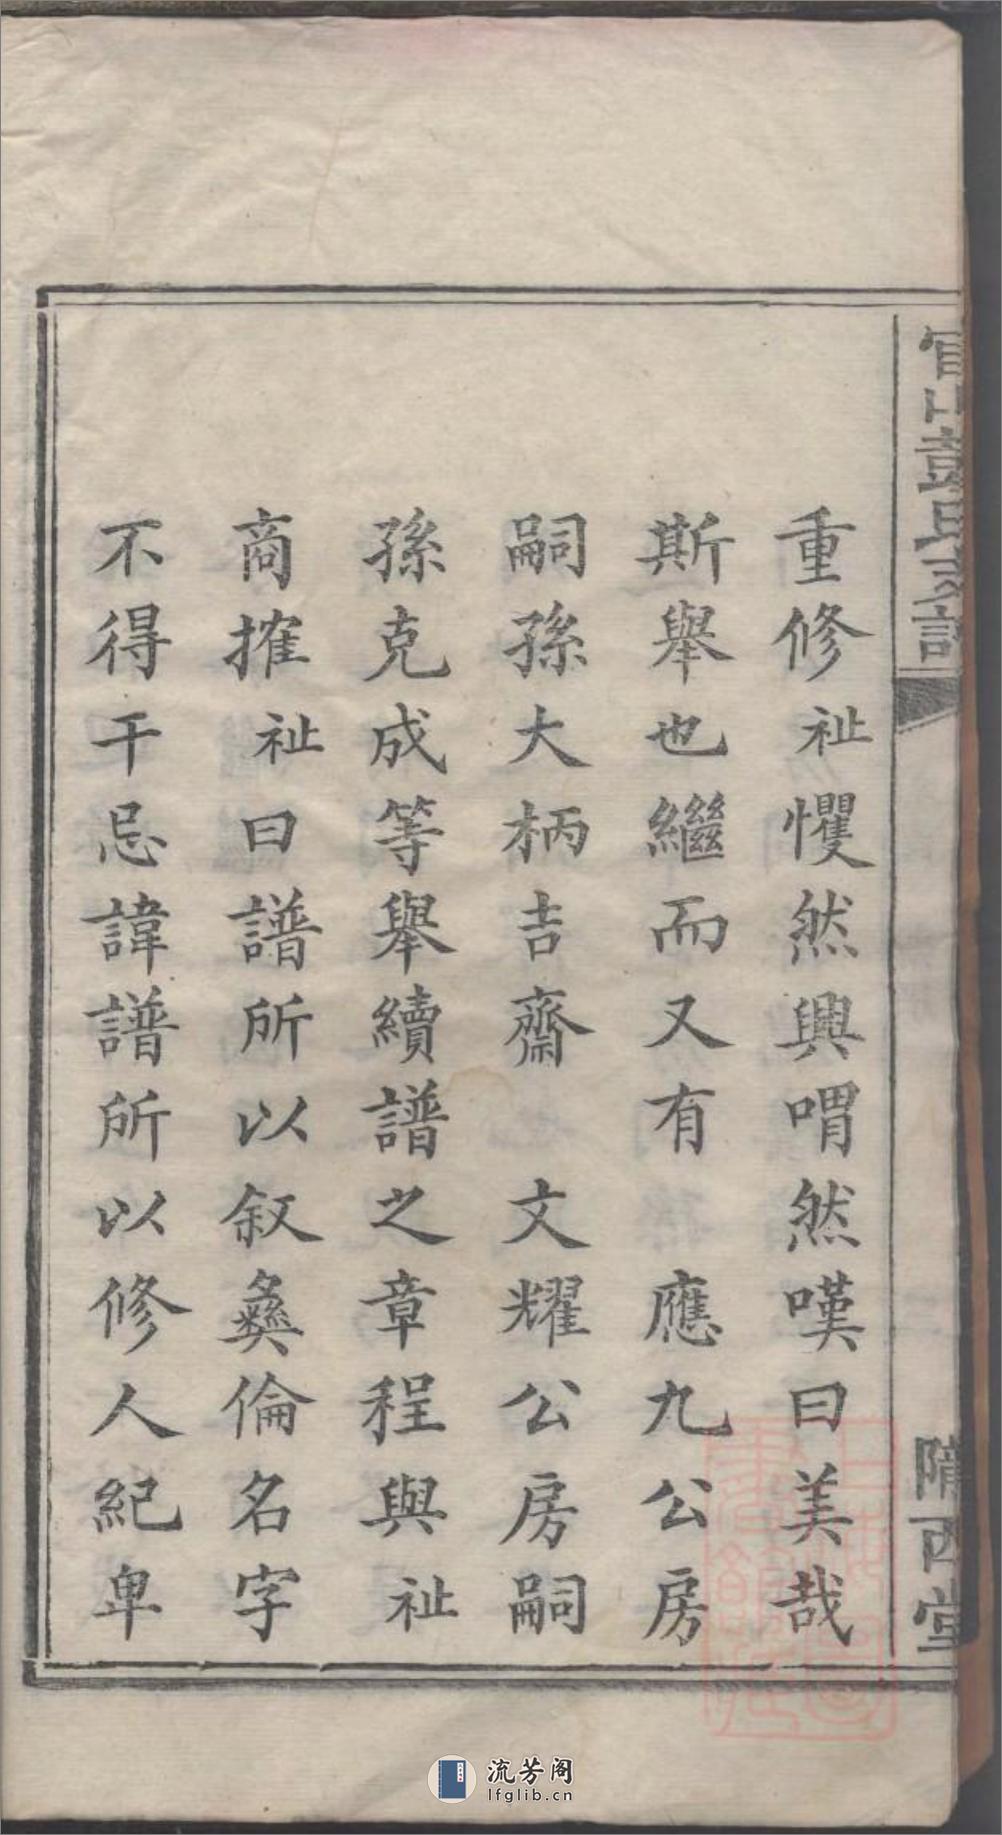 官山彭氏支譜
隋西堂
重修祉懼然興喟然嘆曰美哉
斯舉也繼而又有 應九公房
嗣孫大柄吉齋 文耀公房嗣
孫克成等舉續譜之章程與祉
商搉祉曰譜所以叙彝倫名字
不得干忌諱譜所以修人紀卑
流芳阁
lfglib.cn